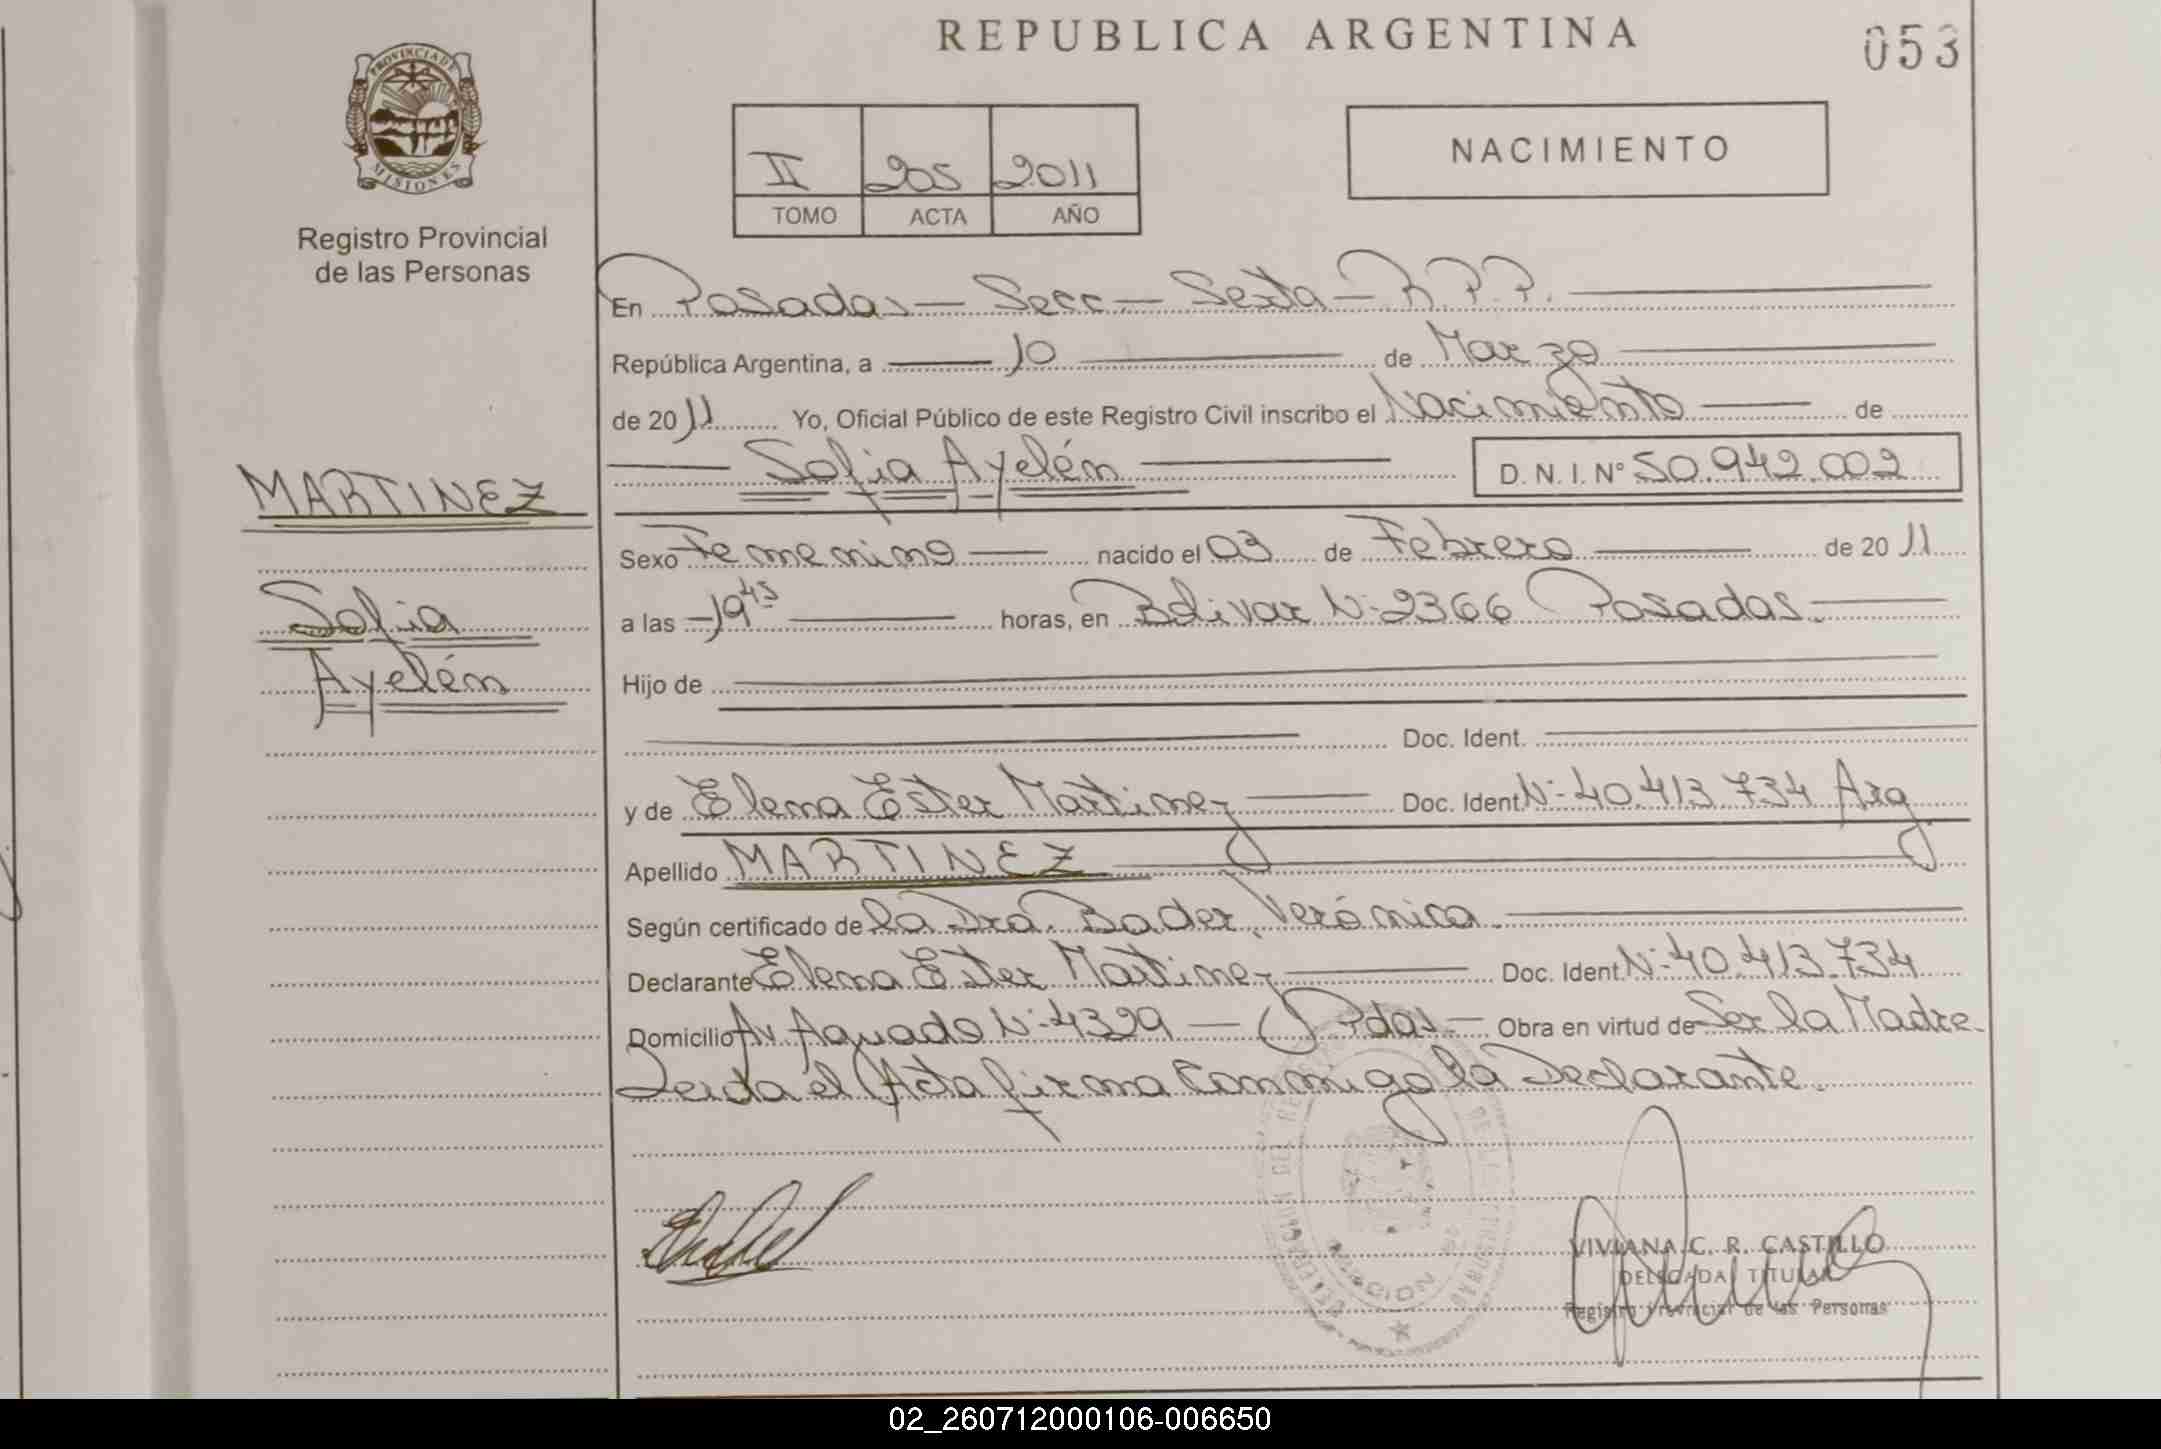 REPUBLICA ARGENTINA
053
PROVINCIA DE
MISIONES
Registro Provincial
de las Personas
II 205 2011
TOMO ACTA AÑO
NACIMIENTO
En Posadas — Secc — Sexta — R.P.P.
República Argentina, a 10 de Marzo
de 2011 Yo, Oficial Público de este Registro Civil inscribo el Nacimiento de
Sofia Ayelén D. N. I. N° 50.942.002
MARTINEZ
Sofia
Ayelén
Sexo Femenino nacido el 03 de Febrero de 2011
a las 19 45 horas, en Bolivar N: 2366 Posadas.
Hijo de
Doc. Ident.
y de Elena Ester Martinez Doc. Ident N: 40.413.734 Arg
Apellido MARTINEZ
Según certificado de la Dra. Bader, Verónica.
Declarante Elena Ester Martinez Doc. Ident. N: 40.413.734
Domicilio Av Aguado N: 4329 — Pdas — Obra en virtud de Ser la Madre.
Leida el Acta firma Conmigo la Declarante.
VIVIANA C. R. CASTILLO
DELEGADA TITULAR
Registro Provincial de las Personas
02_260712000106-006650